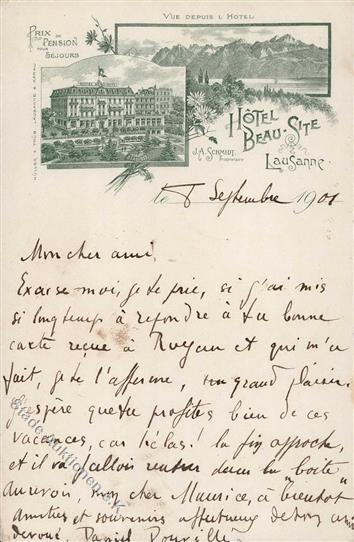 VUE DEPUIS L'HOTEL
PRIX DE PENSION POUR SÉJOURS
MÜLLER & TRÜB LAUSANNE & AARAU
HÔTEL BEAU-SITE
LAUSANNE
J.A. SCHMIDT, Propriétaire
le 8 Septembre 1901
Mon cher ami,
Excuse moi, je te prie, si j'ai mis
si longtemps à répondre à ta bonne
carte reçue à Royan et qui m'a
fait, je te l'affirme, un grand plaisir.
J'espère que tu profites bien de ces
vacances, car hélas! la fin approche,
et il va falloir rentrer dans la "boîte"
au revoir, mon cher Maurice, à "bientôt"
amitiés et souvenirs affectueux de ton ami
dévoué, Daniel